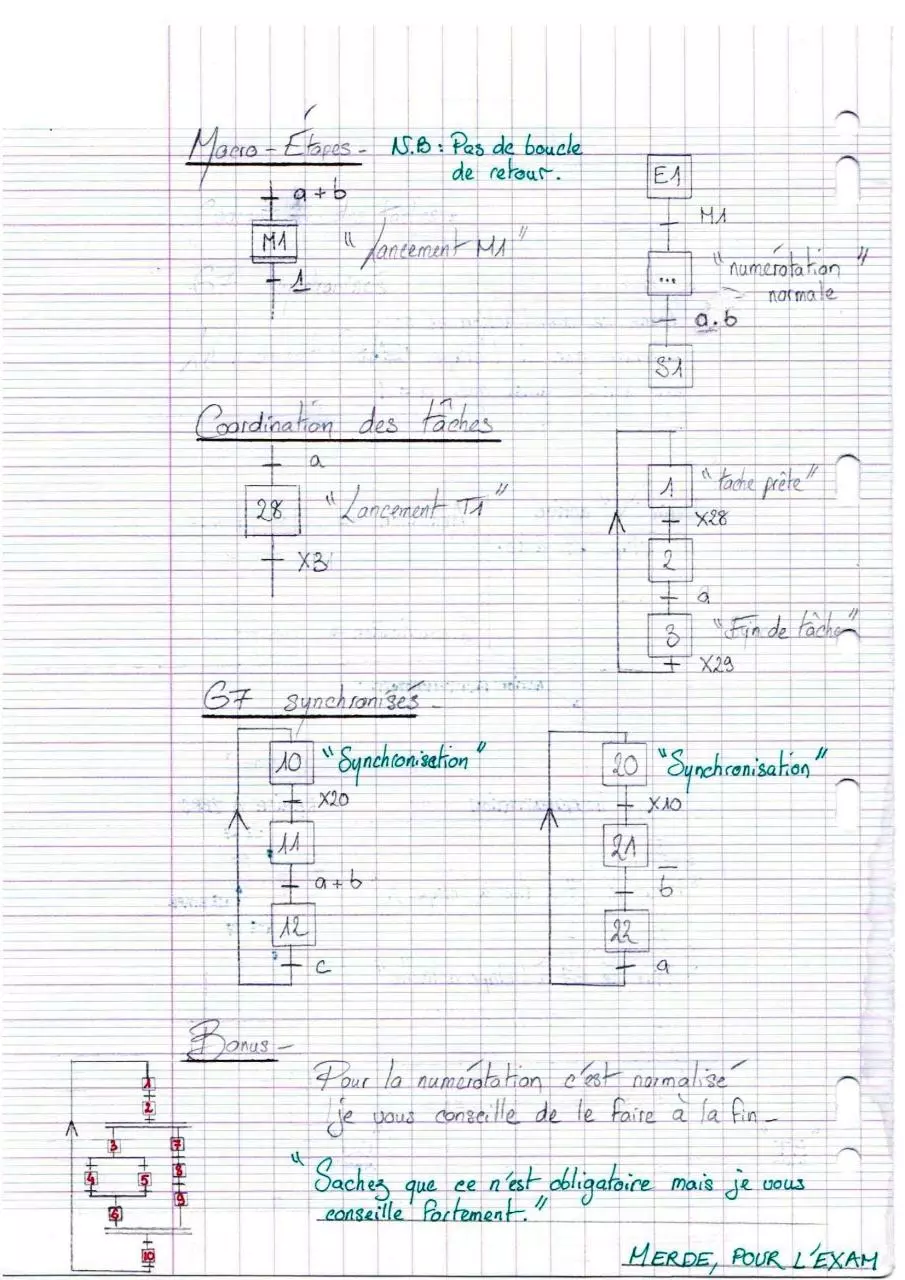 Macro-Étapes- N.B: Pas de boucle
de retour.
a+b
M1 "Lancement M1"
1
E1
M1
... "numérotation
normale"
a.b
S1
Coordination des tâches
a
28 "Lancement T1"
X3
1 "tache prête"
X28
2
a
3 "Fin de tâche"
X29
G7 synchronisés-
10 "Synchronisation"
X20
11
a+b
12
c
20 "Synchronisation"
X10
21
b̅
22
a
Bonus-
Pour la numérotation c'est normalisé
je vous conseille de le faire à la fin-
"Sachez que ce n'est obligatoire mais je vous
conseille fortement."
1
2
3 7
4 5 8
6 9
10
MERDE, POUR L'EXAM